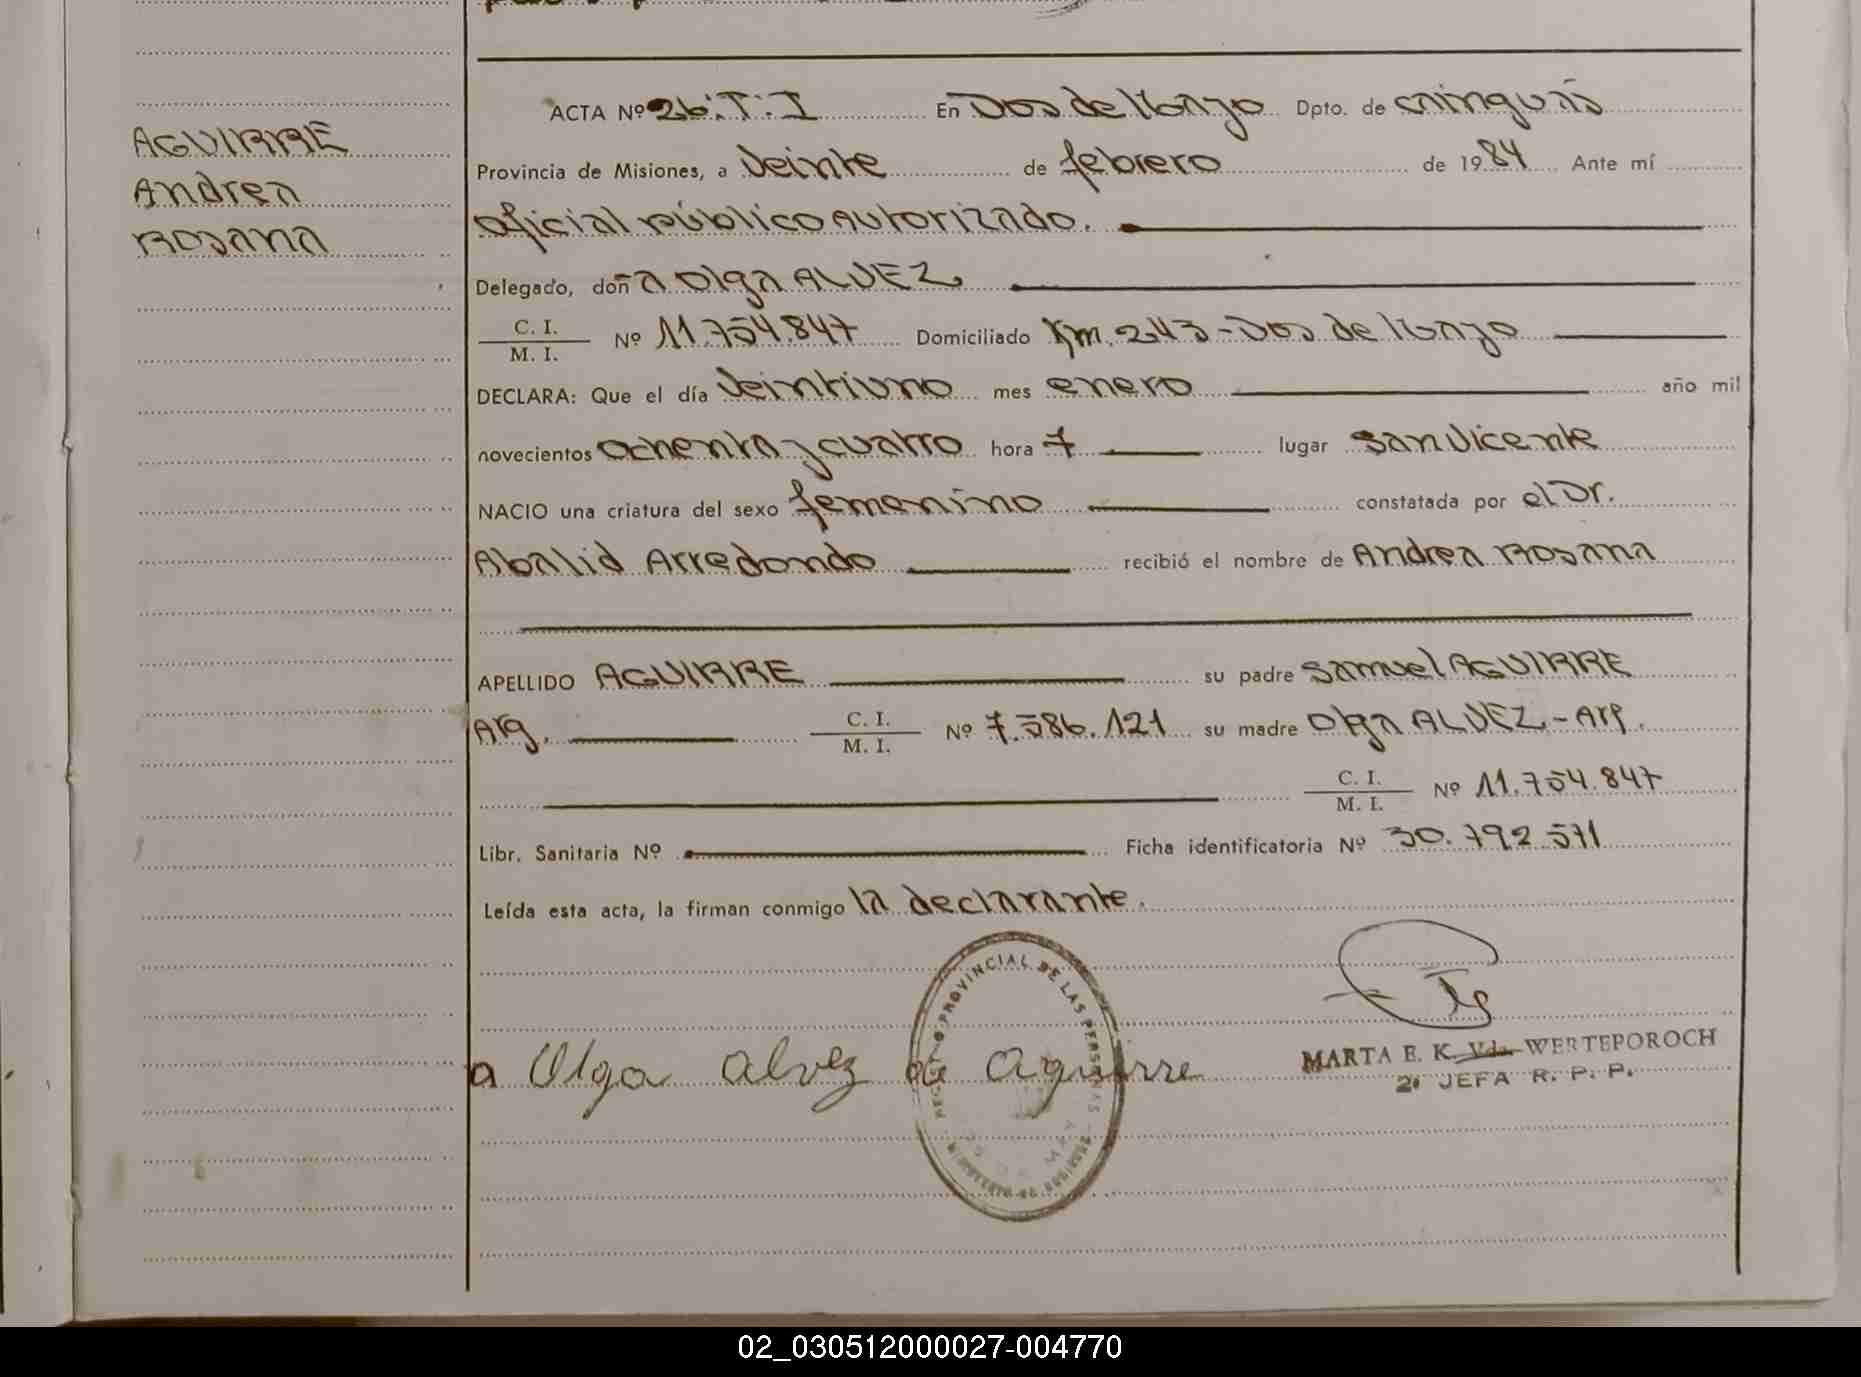 AGUIRRE
Andrea
Rosana
ACTA Nº 26.T.I En Dos de Mayo Dpto. de Cainguás
Provincia de Misiones, a Veinte de febrero de 1984 Ante mí
Oficial público Autorizado.
Delegado, doña Olga ALVEZ
C. I.
M. I. Nº 11.754.847 Domiciliado Km. 243 - Dos de Mayo
DECLARA: Que el día Veintiuno mes enero año mil
novecientos ochenta y cuatro hora 7 lugar San Vicente
NACIO una criatura del sexo femenino constatada por el Dr.
Abalid Arredondo recibió el nombre de Andrea Rosana
APELLIDO AGUIRRE su padre Samuel AGUIRRE
Arg. C. I.
M. I. Nº 7.586.121 su madre Olga ALVEZ - Arg.
C. I.
M. I. Nº 11.754.847
Libr. Sanitaria Nº Ficha identificatoria Nº 30.792.571
Leída esta acta, la firman conmigo la declarante.
PROVINCIAL DE LAS PERSONAS
a Olga Alvez de Aguirre
MARTA E. K. Vda. WERTEPOROCH
2º JEFA R. P. P.
02_030512000027-004770